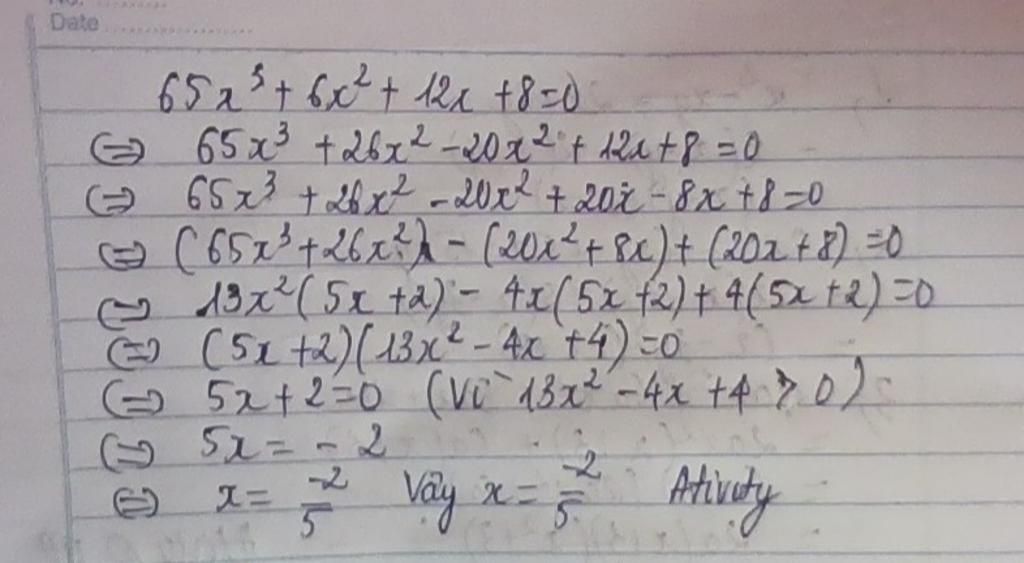 No.
Date
65x³ + 6x² + 12x + 8 = 0
⇔ 65x³ + 26x² - 20x² + 12x + 8 = 0
⇔ 65x³ + 26x² - 20x² + 20x - 8x + 8 = 0
⇔ (65x³ + 26x²) - (20x² + 8x) + (20x + 8) = 0
⇔ 13x²(5x + 2) - 4x(5x + 2) + 4(5x + 2) = 0
⇔ (5x + 2)(13x² - 4x + 4) = 0
⇔ 5x + 2 = 0 (Vì 13x² - 4x + 4 > 0)
⇔ 5x = - 2
⇔ x = -2/5 Vậy x = -2/5